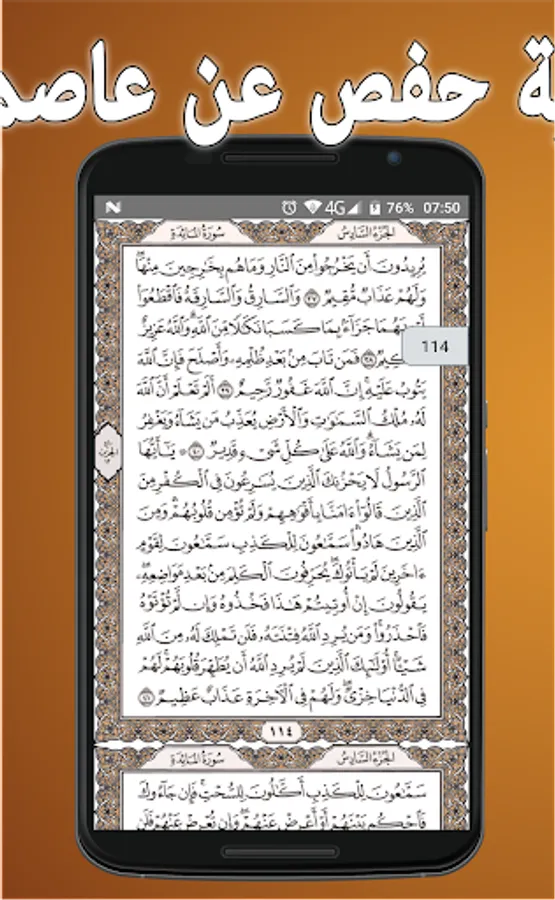 ة حفص عن عاصم
76% 07:50 4G
سُورَةُ المَائِدَةِ الجُزْءُ السَّادِسُ
يُرِيدُونَ أَن يَخْرُجُوا۟ مِنَ ٱلنَّارِ وَمَا هُم بِخَـٰرِجِينَ مِنْهَا ۖ
وَلَهُمْ عَذَابٌ مُّقِيمٌ ٣٧ وَٱلسَّارِقُ وَٱلسَّارِقَةُ فَٱقْطَعُوٓا۟
أَيْدِيَهُمَا جَزَآءًۢ بِمَا كَسَبَا نَكَـٰلًا مِّنَ ٱللَّهِ ۗ وَٱللَّهُ عَزِيزٌ
حَكِيمٌ ٣٨ فَمَن تَابَ مِنۢ بَعْدِ ظُلْمِهِۦ وَأَصْلَحَ فَإِنَّ ٱللَّهَ
114
يَتُوبُ عَلَيْهِ ۗ إِنَّ ٱللَّهَ غَفُورٌ رَّحِيمٌ ٣٩ أَلَمْ تَعْلَمْ أَنَّ ٱللَّهَ
لَهُۥ مُلْكُ ٱلسَّمَـٰوَٰتِ وَٱلْأَرْضِ يُعَذِّبُ مَن يَشَآءُ وَيَغْفِرُ
لِمَن يَشَآءُ ۗ وَٱللَّهُ عَلَىٰ كُلِّ شَىْءٍ قَدِيرٌ ٤٠ ۞ يَـٰٓأَيُّهَا
ٱلرَّسُولُ لَا يَحْزُنكَ ٱلَّذِينَ يُسَـٰرِعُونَ فِى ٱلْكُفْرِ مِنَ
ٱلَّذِينَ قَالُوٓا۟ ءَامَنَّا بِأَفْوَٰهِهِمْ وَلَمْ تُؤْمِن قُلُوبُهُمْ ۛ وَمِنَ
ٱلَّذِينَ هَادُوا۟ ۛ سَمَّـٰعُونَ لِلْكَذِبِ سَمَّـٰعُونَ لِقَوْمٍ
ءَاخَرِينَ لَمْ يَأْتُوكَ ۖ يُحَرِّفُونَ ٱلْكَلِمَ مِنۢ بَعْدِ مَوَاضِعِهِۦ ۖ
يَقُولُونَ إِنْ أُوتِيتُمْ هَـٰذَا فَخُذُوهُ وَإِن لَّمْ تُؤْتَوْهُ
فَٱحْذَرُوا۟ ۚ وَمَن يُرِدِ ٱللَّهُ فِتْنَتَهُۥ فَلَن تَمْلِكَ لَهُۥ مِنَ ٱللَّهِ
شَيْـًٔا ۚ أُو۟لَـٰٓئِكَ ٱلَّذِينَ لَمْ يُرِدِ ٱللَّهُ أَن يُطَهِّرَ قُلُوبَهُمْ ۚ لَهُمْ
فِى ٱلدُّنْيَا خِزْىٌ ۖ وَلَهُمْ فِى ٱلْـَٔاخِرَةِ عَذَابٌ عَظِيمٌ ٤١
١١٤
سُورَةُ المَائِدَةِ الجُزْءُ السَّادِسُ
سَمَّـٰعُونَ لِلْكَذِبِ أَكَّـٰلُونَ لِلسُّحْتِ ۚ فَإِن جَآءُوكَ
فَٱحْكُم بَيْنَهُمْ أَوْ أَعْرِضْ عَنْهُمْ ۖ وَإِن تُعْرِضْ عَنْهُمْ فَلَن